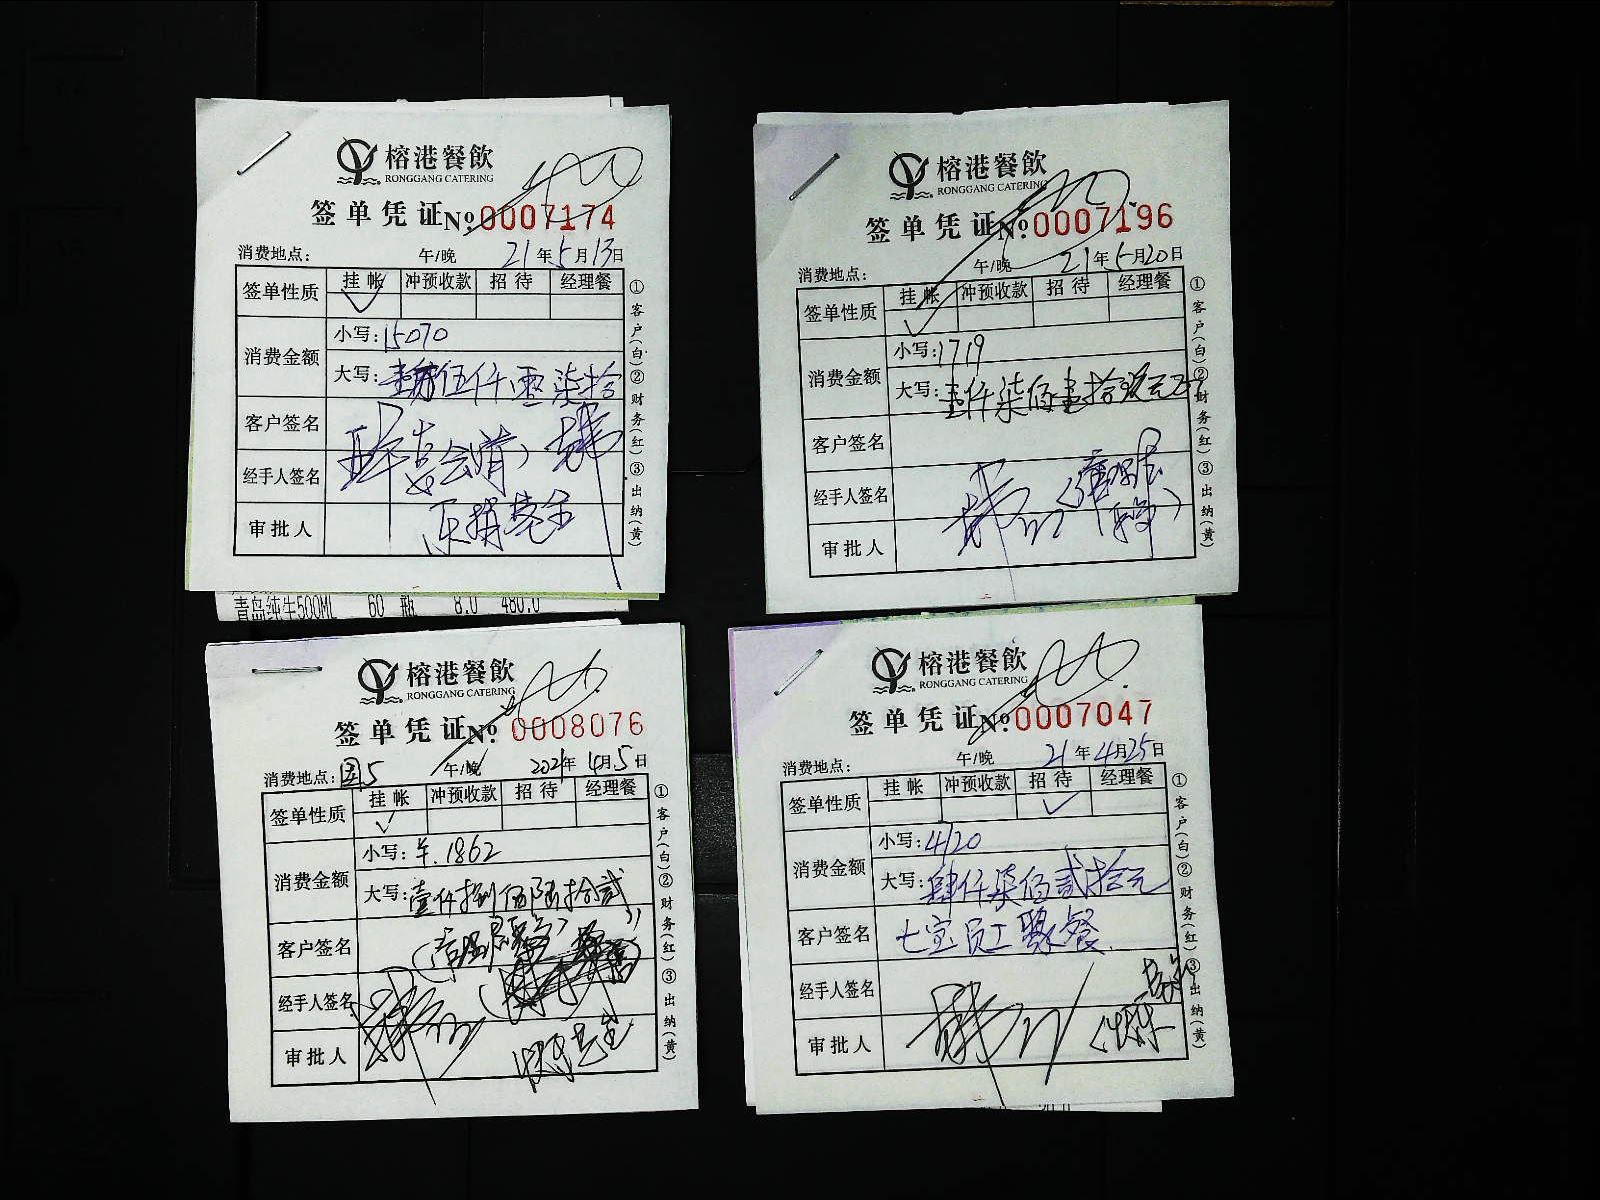 榕港餐飲
RONGGANG CATERING
签单凭证 No. 0007174
消费地点: 午/晚 21年5月13日
签单性质 挂帐 冲预收款 招待 经理餐
✓
消费金额 小写: 15070
大写: 伍仟零柒拾
客户签名
经手人签名
审批人
①客户(白)②财务(红)③出纳(黄)
青岛纯生500ML 60 瓶 8.0 480.0
榕港餐飲
RONGGANG CATERING
签单凭证 No. 0007196
消费地点: 午/晚 21年5月20日
签单性质 挂帐 冲预收款 招待 经理餐
✓
消费金额 小写: 1719
大写: 壹仟柒佰壹拾玖元正
客户签名
经手人签名
审批人
①客户(白)②财务(红)③出纳(黄)
榕港餐飲
RONGGANG CATERING
签单凭证 No. 0008076
消费地点: 午/晚 2021年4月5日
签单性质 挂帐 冲预收款 招待 经理餐
✓
消费金额 小写: 1862
大写: 壹仟捌佰陆拾贰
客户签名
经手人签名
审批人
①客户(白)②财务(红)③出纳(黄)
榕港餐飲
RONGGANG CATERING
签单凭证 No. 0007047
消费地点: 午/晚 21年4月25日
签单性质 挂帐 冲预收款 招待 经理餐
✓
消费金额 小写: 4720
大写: 肆仟柒佰贰拾元
客户签名 七宝员工聚餐
经手人签名
审批人
①客户(白)②财务(红)③出纳(黄)